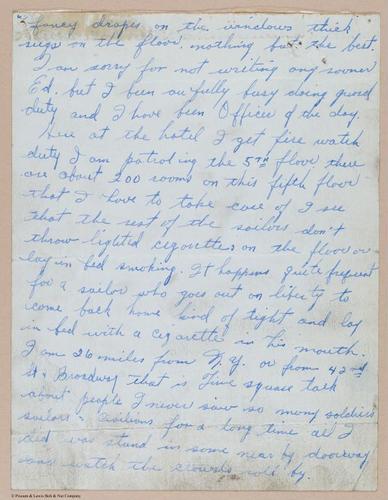 fancy drapes on the windows thick
rugs on the floor, nothing but the best.
I am sorry for not writing any sooner
Ed. but I been awfully busy doing guard
duty and I have been Officer of the day.
Here at the hotel I get fire watch
duty I am patroling the 5th floor there
are about 200 rooms on this fifth floor
that I have to take care of I see
that the rest of the sailors don't
throw lighted cigarettes on the floor or
lay in bed smoking. It happens quite frequent
for a sailor who goes out on liberty to
come back home kind of tight and lay
in bed with a cigarette in his mouth.
I am 26 miles from N.Y. or from 42nd
St & Broadway that is Time square talk
about people I never saw so many soldiers
sailors & civilians for a long time all I
did was stand in some near by doorway
and watch the crowds roll by.
© Possum & Lewis Bolt & Nut Company